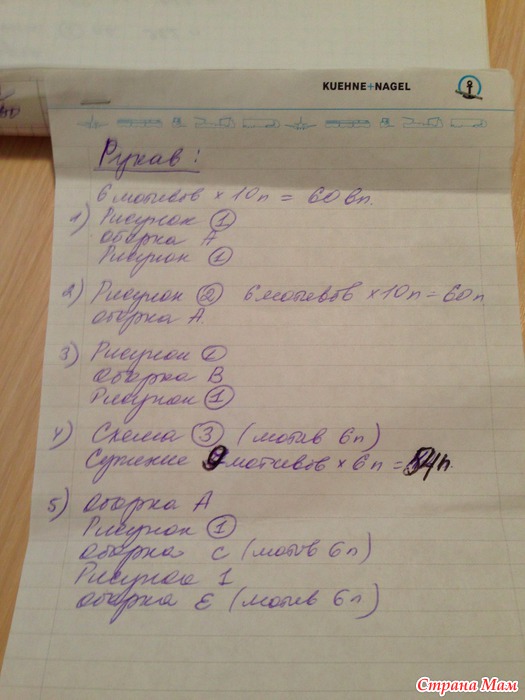 KUEHNE+NAGEL
Рукав:
6 мотивов × 10п = 60 вп.
1) Рисунок 1
оборка A
Рисунок 1
2) Рисунок 2 6 мотивов × 10п = 60п
оборка A.
3) Рисунок
оборка B
Рисунок 1
4) Схема 3 (мотив 6п)
Сужение 9 мотивов × 6п = 54п.
5) оборка A
Рисунок 1
оборка C (мотив 6п)
Рисунок 1
оборка E (мотив 6п)
Страна Мам